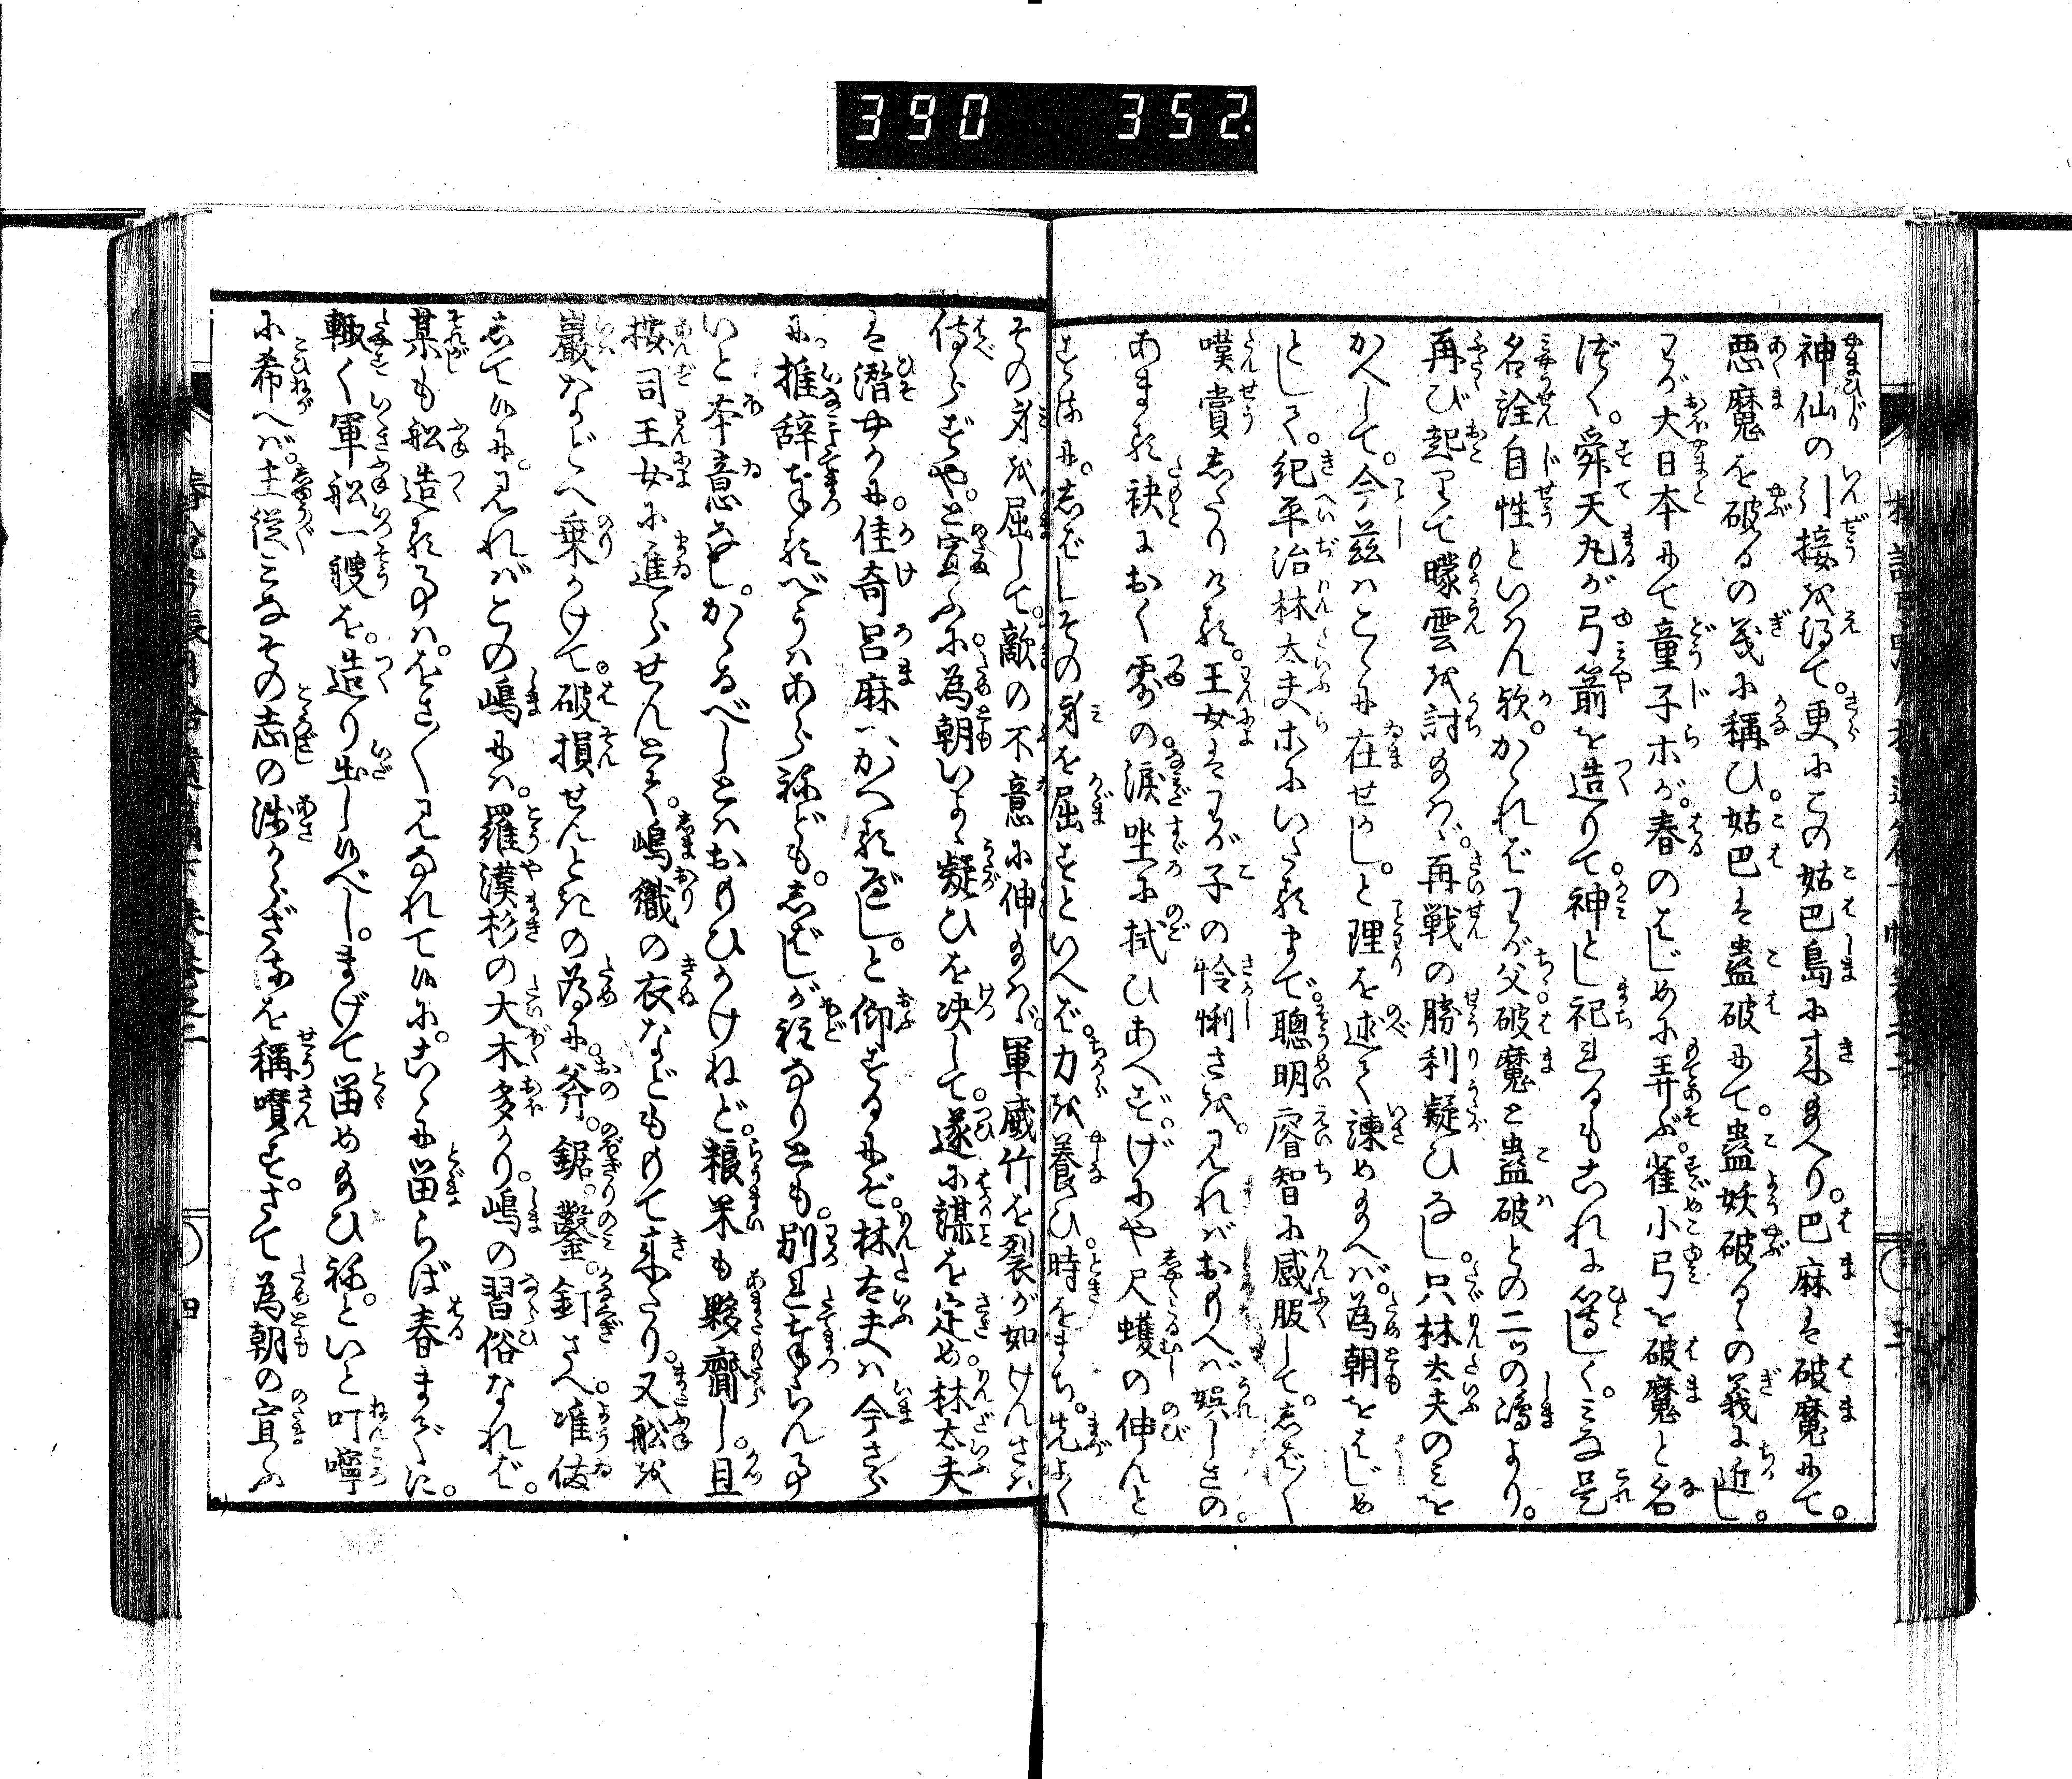 390 352.
神仙の引接を得て。更にこの姑巴島に来給へり。巴麻は破魔にて。
悪魔を破るの義に稱ひ。姑巴は蠱破にて。蠱妖破るゝの義に近し。
わが大日本にて童子ホが。春のはじめに弄ぶ。雀小弓を破魔と名
づく。舜天丸が弓箭を造りて。神とし祀るもこれに等しく。みな是
名詮自性といはん歟。かゝればわが父破魔と蠱破との二ッの嶋より。
再び起りて曚雲を討給はゞ。再戦の勝利疑ひなし。只林太夫のみを
かへして。今茲はこゝに在せかし。と理を述て諫め給へば。為朝をはじめ
として。紀平治林太夫ホにいたるまで。聰明睿智に感服して。しば〳〵
嘆賞したりける。王女はわが子の怜悧さを。見ればおもへば娯しさの。
あまる袂におく露の。涙坐に拭ひあへず。げにや尺蠖の伸んと
するに。しばしその身を屈すといへば。力を養ひ。時をまち。先よく
その身を屈して。敵の不意に伸給はゞ。軍威竹を裂が如けんさは
侍らずや。と宣ふに。為朝いよゝ疑ひを决して。遂に謀を定め。林太夫
は潜やかに。佳奇呂麻へかへるべし。と仰するにぞ。林太夫は今さら
に推辞まつるべうはあらねども。しばしが程なりとも。別れまつらん事
いと本意なし。かゝるべしとはおもひかけねど。粮米も夥齎し。且
按司王女に進らせんとて。嶋織の衣などももて来たり。又船を
巖などへ乗かけて。破損せんときの為に。斧。鋸。鑿。釘さへ准備
して候に。見ればこの嶋には。羅漢杉の大木多かり。嶋の習俗なれば。
某も船造る事は。をさ〳〵見なれて候に。こゝに留らば春までに。
輙く軍船一艘を。造り出し候べし。まげて留め給ひね。といと叮嚀
に希へば。主従みなその志の浅からざるを稱嘆す。さて為朝の宣ふ